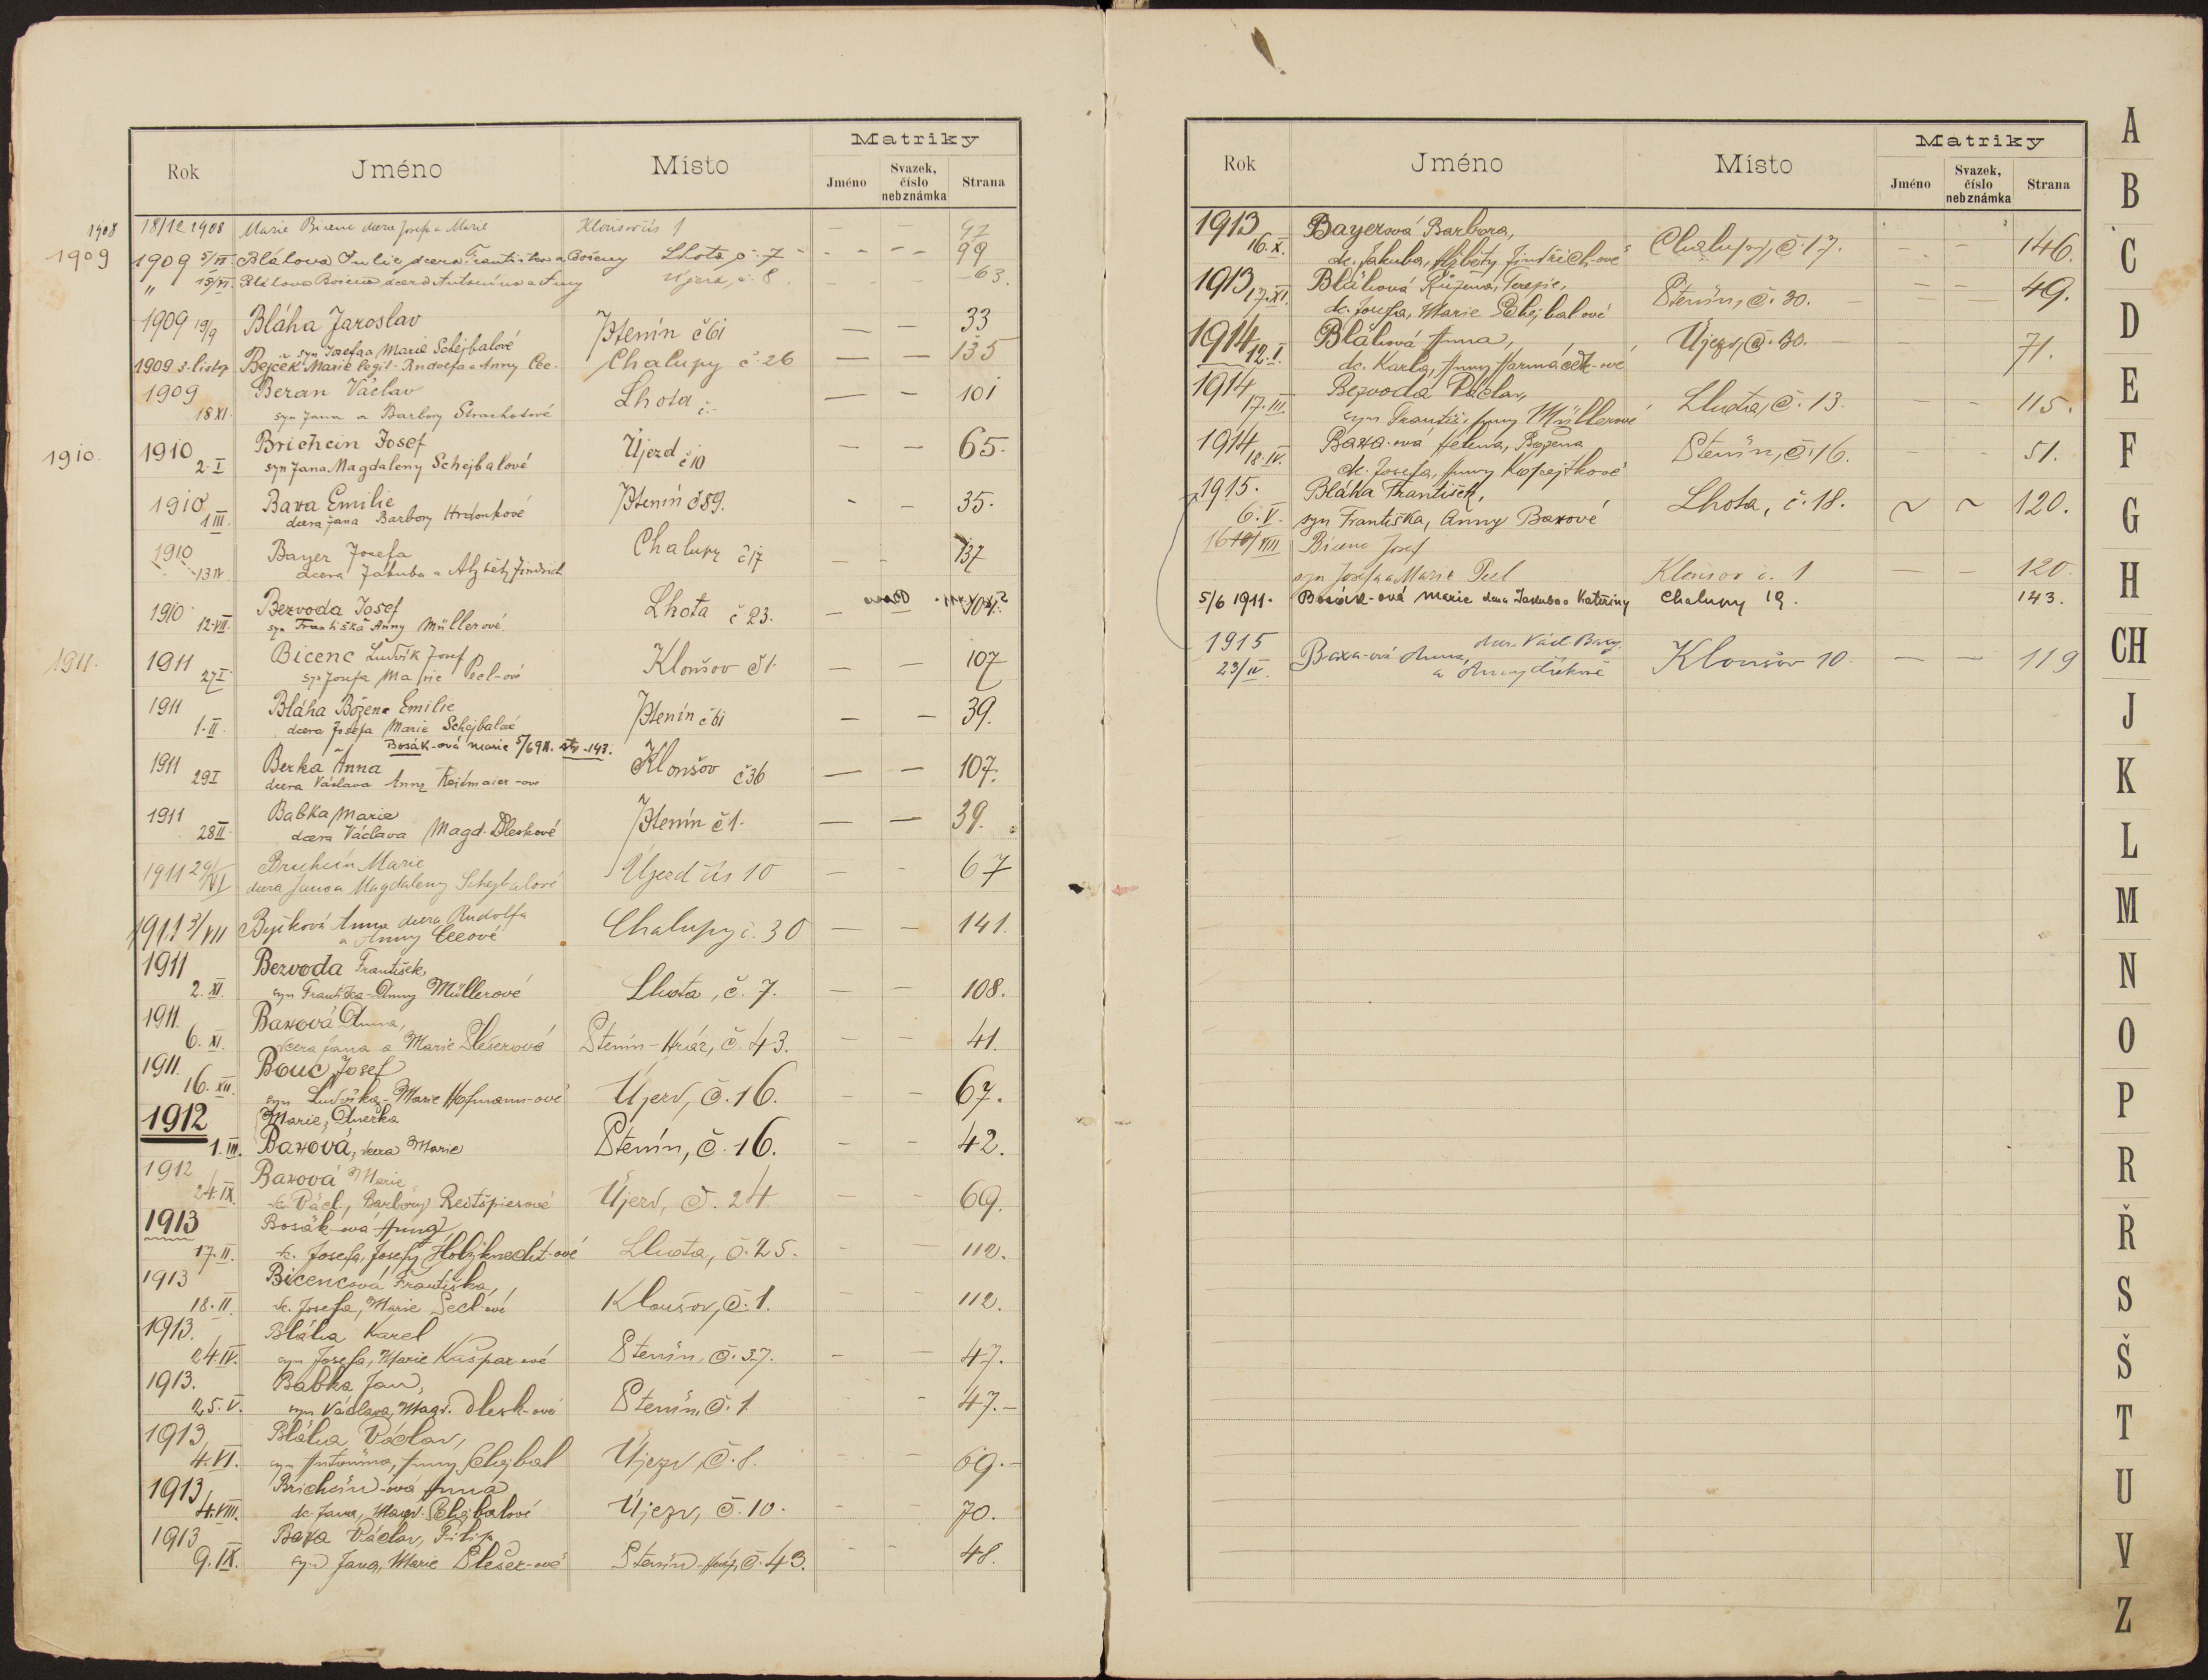 Rok Jméno Místo Matriky
Jméno Svazek, číslo neb známka Strana
1908 18/12 1908 Marie Bicenc dcera Josefa a Marie Klonšov čís 1 — — 97
1909 1909 5/VI Bláhova Julie dcera Františka a Boženy Lhota č. 7 - - - 99
" 15/VI. Bláhova Božena dcera Antonína a Anny Újezd, č. 8 - - - 63.
1909 19/9 Bláha Jaroslav Ptenín č 61 — — 33
syn Josefa a Marie Schejbalové
1909 3. listop Bejček Marie legit. Rudolfa a Anny Cee. Chalupy č 26 — — 135
1909 Beran Václav Lhota č. — — 101
18 XI. syn Jana a Barbory Strachotové
1910 1910 Brichcin Josef Újezd č 10 — — 65.
2. I syn Jana Magdaleny Schejbalové
1910 Baxa Emilie Ptenín č 89. - - 35.
1 III. dcera Jana Barbory Hrdonkové
1910 Bayer Josefa Chalupy č 17 — - 137
13 IV dcera Jakuba a Alžběty Jindřich
1910 Bezvoda Josef Lhota č 23. —
12. VII. syn Františka Anny Müllerové
1911. 1911 Bicenc Ludvík Josef Klonšov č 1. — — 107
27 I. syn Josefa Marie Pecl-ové
1911 Bláha Božena Emilie Ptenín č 61 — — 39.
1. II. dcera Josefa Marie Schejbalové
Bosák-ová Marie 5/6 911. str. 143.
1911 Berka Anna Klonšov č 36 — — 107.
29 I dcera Václava Anny Reitmaier-ové
1911 Babka Marie Ptenín č 1. — — 39.
28 II. dcera Václava Magd. Dleskové
1911 29/VI Brichcín Marie Újezd čís 10 — - 67
dcera Jana a Magdaleny Schejbalové
1911 3/VII Bejčková Anna dcera Rudolfa Chalupy č. 30 — — 141.
a Anny Ceeové
1911 Bezvoda František, Lhota, č. 7. — — 108.
2. XI. syn Františka - Anny Müllerové
1911. Baxová Anna, Ptenín - Hráz, č. 43. — — 41.
6. XI. dcera Jana a Marie Plešerové
1911. Bouc Josef Újezd, č. 16. — — 67.
16. XII. syn Ludvíka - Marie Hofmann-ové
1912 Marie, Anežka
1. III. Baxová, dcera Marie Ptenín, č. 16. — - 42.
1912 Baxová Marie Újezd, č. 24. — - 69.
24. IX. dc. Václ., Barbory Reitšpiesové
1913 Bosák-ová Anna Lhota, č. 25. - - 112.
17. II. dc. Josefa, Josefy Holzknecht-ové
1913 Bicencová Františka, Klonšov, č. 1. - - 112.
18. II. dc. Josefa, Marie Pecl-ové
1913. Bláha Karel Ptenín, č. 37. - — 47.
24. IV. syn Josefa, Marie Kašpar-ové
1913. Babka Jan, Ptenín, č. 1. - - 47. -
25. V. syn Václava, Magd. Dlesk-ové
1913 Bláha Václav, Újezd, č. 8. - — 69. -
4. VI. syn Antonína, Anny Schejbal
1913 Brichcín-ová Anna Újezd, č. 10. - - 70.
4. VIII. dc. Jana, Magd. Schejbalové
1913 Baxa Václav, Filip Ptenín - Hráz, č. 43. - - 48.
9. IX. syn Jana, Marie Plešer-ové
Rok Jméno Místo Matriky
Jméno Svazek, číslo neb známka Strana
1913 Bayerová Barbora, Chalupy, č. 17. - - 146.
16. X. dc. Jakuba, Alžběty Jindřich-ové
1913 Bláhová Růžena, Terezie, Ptenín, č. 30. — - — 49.
17. XI. dc. Josefa, Marie Schejbalové
1914 Bláhová Anna, Újezd, č. 30. — - - 71.
12. I. dc. Karla, Anny Harmáček-ové
1914 Bezvoda Václav, Lhota, č. 13. - - 115.
17. III. syn Františ., Anny Müllerové
1914 Baxa-ová Helena, Božena Ptenín, č. 16. - - 51.
18. IV. dc. Josefa, Anny Kopejtkové
1915. Bláha František, Lhota, č. 18. ~ ~ 120.
6. V. syn Františka, Anny Baxové
16/VIII Bicenc Josef
syn Josefa a Marie Pecl Klonšov č. 1 — — 120
5/6 1911. Bosák-ová Marie dcera Jakuba a Kateřiny Chalupy 19. 143.
1915 Baxa-ová Anna, dcera Václ. Baxy Klonšov 10. — — 119
23/IV.
A
B
C
D
E
F
G
H
CH
J
K
L
M
N
O
P
R
Ř
S
Š
T
U
V
Z